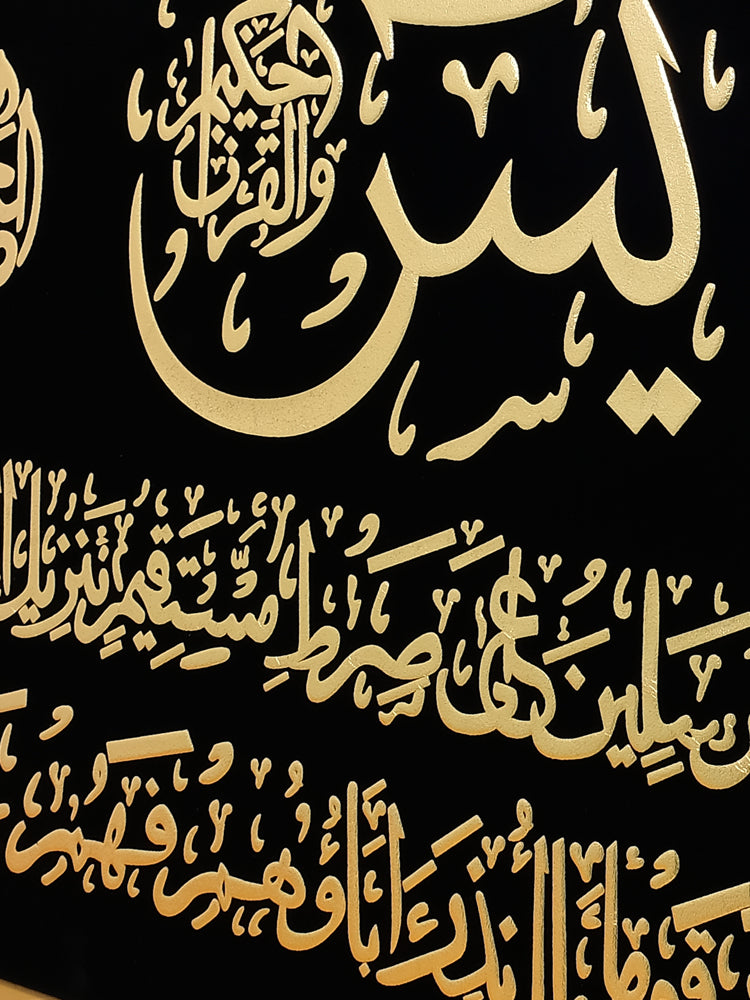 يس
والقرآن الحكيم
المرسلين على صرط مستقيم تنزيل
قوما ما أنذر ءاباؤهم فهم